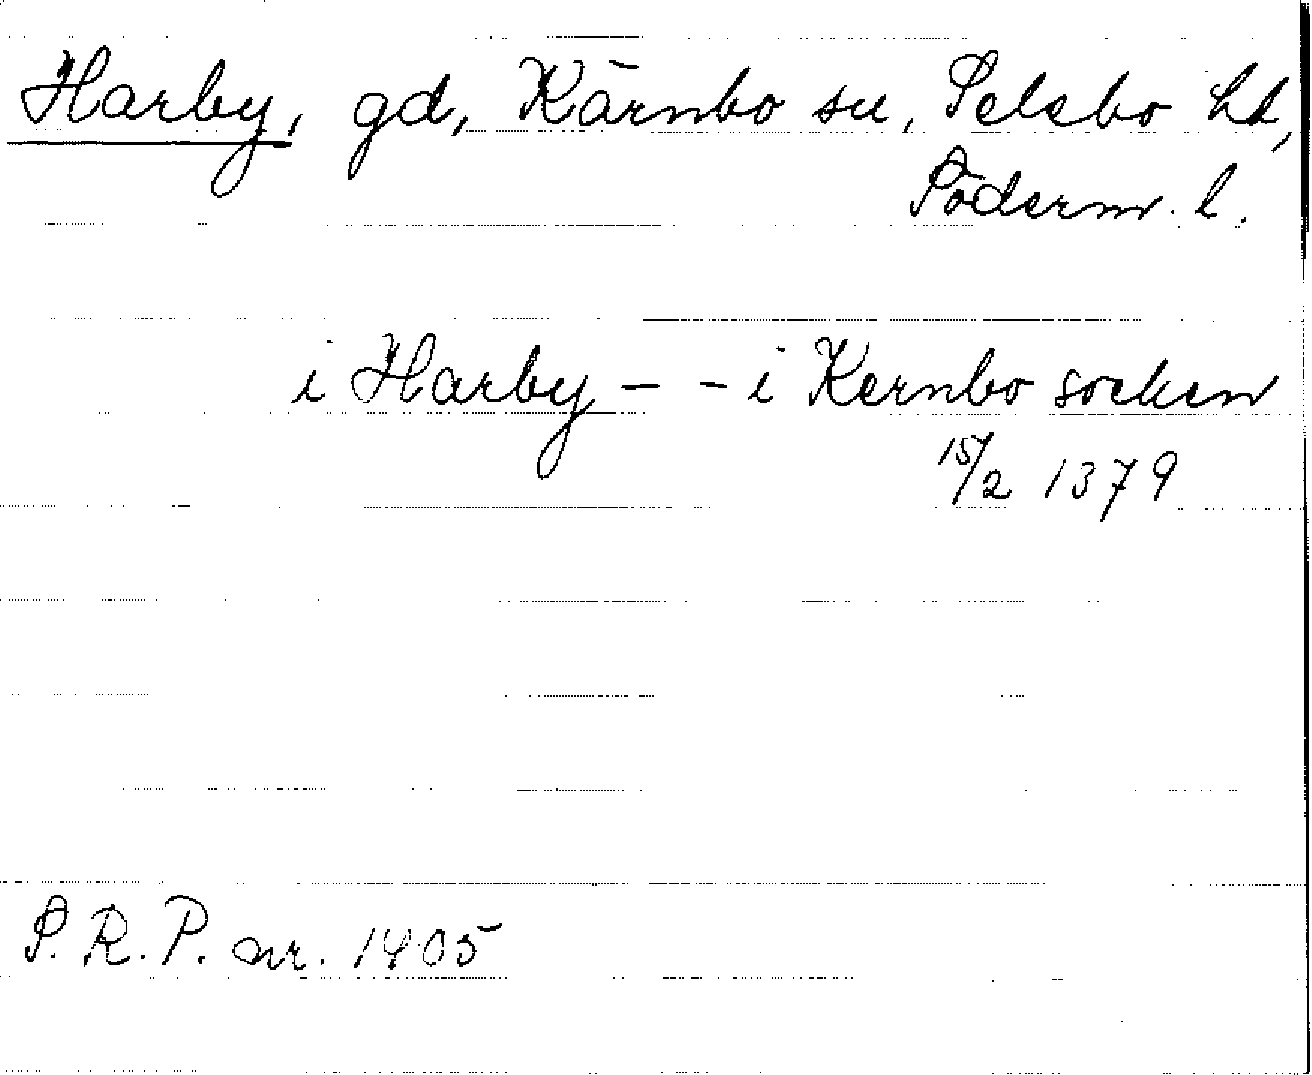 Harby, gd, Kärnbo sn, Selebo hd,
Söderm. l.
i Harby - - i Kernbo socken
15/2 1379
S.R.P. nr. 1405